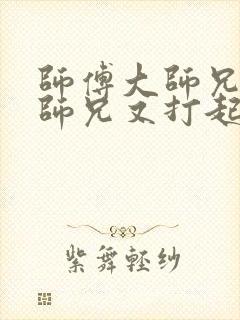 師傅大師兄
師兄又打起
紫舞輕紗